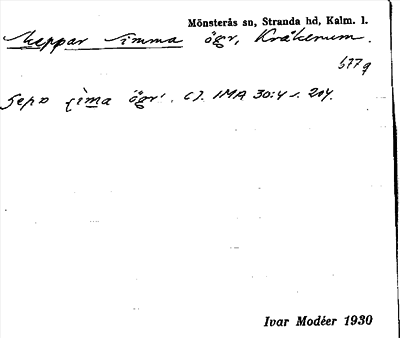 Mönsterås sn, Stranda hd, Kalm. l.
Skeppar Simma ögr, Kråkerum.
577 q
ögr. Cf. IMA 30:4 s. 204.
Ivar Modéer 1930